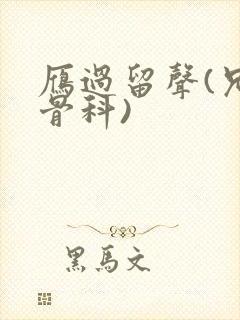 雁過留聲(兄
骨科)
黑馬文